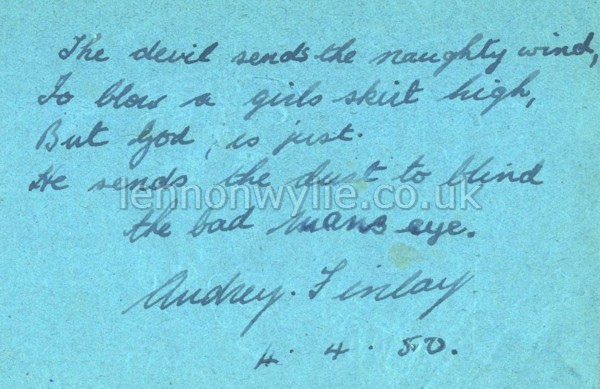 The devil sends the naughty wind,
To blow a girls skirt high,
But God, is just.
He sends the dust to blind
lennonwylie.co.uk
the bad mans eye.
Audrey. Finlay.
4. 4. 50.